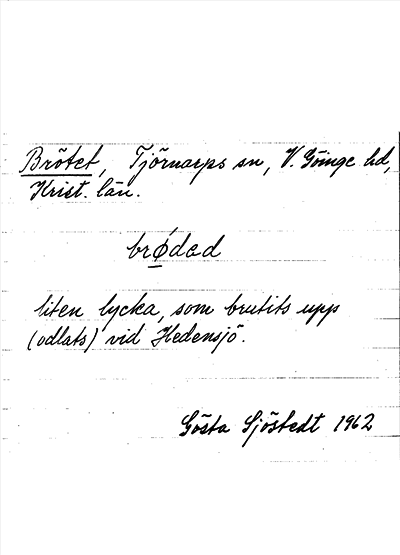 Brötet, Tjörnarps sn, V. Göinge hd,
Krist. län.
brǿdad
liten lycka, som brutits upp
(odlats) vid Hedensjö.
Gösta Sjöstedt 1962